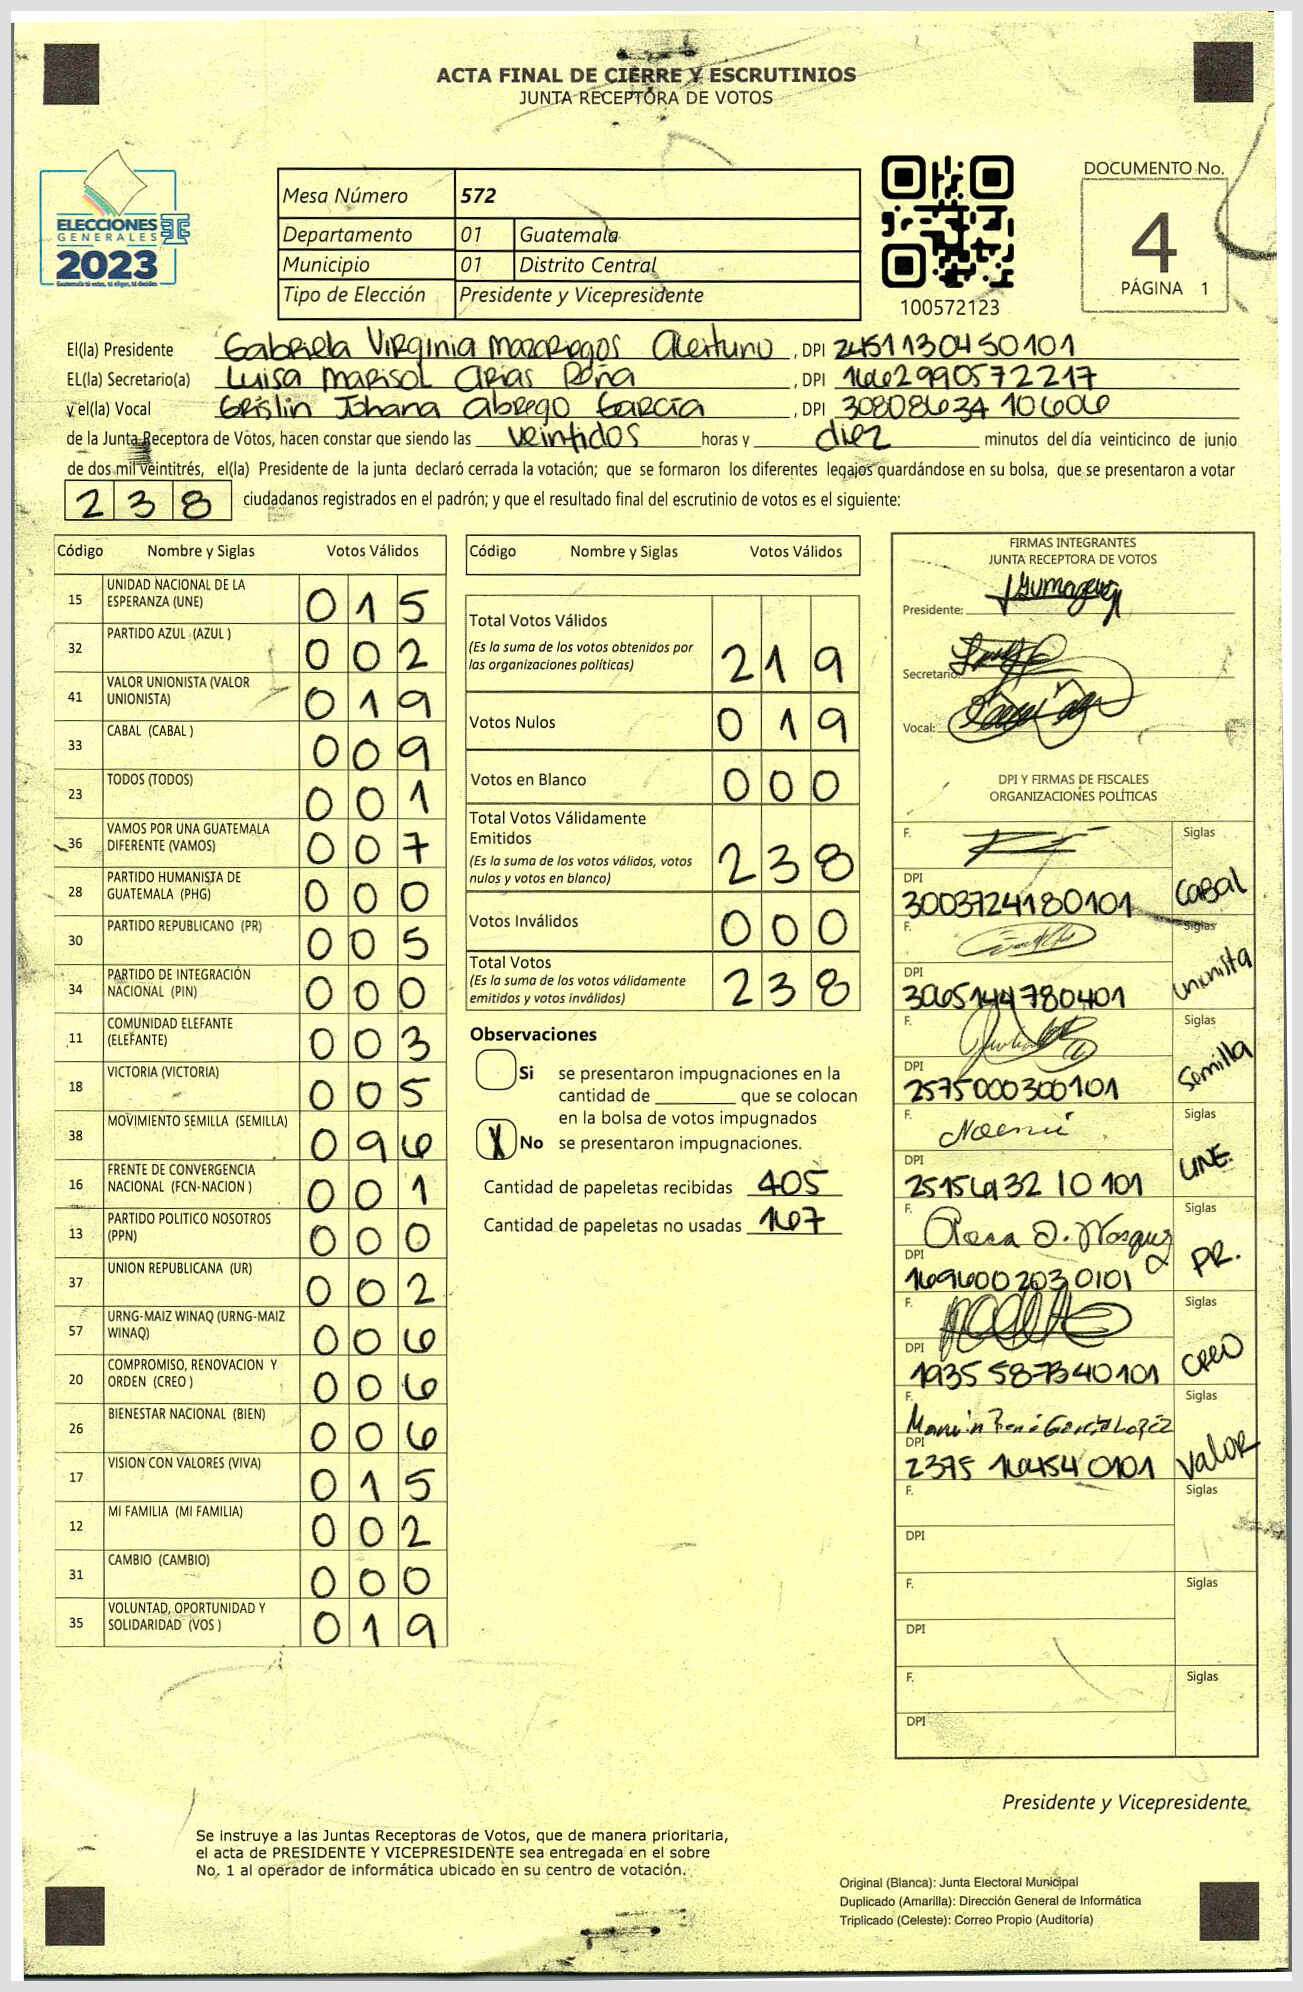 ACTA FINAL DE CIERRE Y ESCRUTINIOS
JUNTA RECEPTORA DE VOTOS
ELECCIONES
GENERALES
2023
Guatemala tú votas, tú eliges, tú decides
Mesa Número 572
Departamento 01 Guatemala
Municipio 01 Distrito Central
Tipo de Elección Presidente y Vicepresidente
100572123
DOCUMENTO No.
4
PÁGINA 1
El(la) Presidente Gabriela Virginia Mazariegos , DPI 2451130450101
EL(la) Secretario(a) Luisa Marisol Arias Peña , DPI 1662990572217
y el(la) Vocal Grislin Johana Abrego García , DPI 3080863410606
de la Junta Receptora de Votos, hacen constar que siendo las veintidos horas y diez minutos del día veinticinco de junio
de dos mil veintitrés, el(la) Presidente de la junta declaró cerrada la votación; que se formaron los diferentes legajos guardándose en su bolsa, que se presentaron a votar
238 ciudadanos registrados en el padrón; y que el resultado final del escrutinio de votos es el siguiente:
Código Nombre y Siglas Votos Válidos
15 UNIDAD NACIONAL DE LA ESPERANZA (UNE) 015
32 PARTIDO AZUL (AZUL ) 002
41 VALOR UNIONISTA (VALOR UNIONISTA) 019
33 CABAL (CABAL ) 009
23 TODOS (TODOS) 001
36 VAMOS POR UNA GUATEMALA DIFERENTE (VAMOS) 007
28 PARTIDO HUMANISTA DE GUATEMALA (PHG) 000
30 PARTIDO REPUBLICANO (PR) 005
34 PARTIDO DE INTEGRACIÓN NACIONAL (PIN) 000
11 COMUNIDAD ELEFANTE (ELEFANTE) 003
18 VICTORIA (VICTORIA) 005
38 MOVIMIENTO SEMILLA (SEMILLA) 096
16 FRENTE DE CONVERGENCIA NACIONAL (FCN-NACION ) 001
13 PARTIDO POLITICO NOSOTROS (PPN) 000
37 UNION REPUBLICANA (UR) 002
57 URNG-MAIZ WINAQ (URNG-MAIZ WINAQ) 006
20 COMPROMISO, RENOVACION Y ORDEN (CREO ) 006
26 BIENESTAR NACIONAL (BIEN) 006
17 VISION CON VALORES (VIVA) 015
12 MI FAMILIA (MI FAMILIA) 002
31 CAMBIO (CAMBIO) 000
35 VOLUNTAD, OPORTUNIDAD Y SOLIDARIDAD (VOS ) 019
Código Nombre y Siglas Votos Válidos
Total Votos Válidos 219
(Es la suma de los votos obtenidos por
las organizaciones políticas)
Votos Nulos 019
Votos en Blanco 000
Total Votos Válidamente
Emitidos 238
(Es la suma de los votos válidos, votos
nulos y votos en blanco)
Votos Inválidos 000
Total Votos 238
(Es la suma de los votos válidamente
emitidos y votos inválidos)
Observaciones
Si se presentaron impugnaciones en la
cantidad de ________ que se colocan
en la bolsa de votos impugnados
X No se presentaron impugnaciones.
Cantidad de papeletas recibidas 405
Cantidad de papeletas no usadas 167
FIRMAS INTEGRANTES
JUNTA RECEPTORA DE VOTOS
Presidente:
Secretario:
Vocal:
DPI Y FIRMAS DE FISCALES
ORGANIZACIONES POLÍTICAS
F. Siglas
DPI CABAL
3003724180101
F. Siglas
DPI Unionista
3065144780401
F. Siglas
DPI Semilla
2575000300101
F. Noemi Siglas
DPI UNE.
2515619 3210101
F. Rosa Siglas
DPI PR.
1696002030101
F. Siglas
DPI CREO
1935587340101
F. García López Siglas
DPI Valor
2375164540101
F. Siglas
DPI
F. Siglas
DPI
F. Siglas
DPI
Presidente y Vicepresidente
Se instruye a las Juntas Receptoras de Votos, que de manera prioritaria,
el acta de PRESIDENTE Y VICEPRESIDENTE sea entregada en el sobre
No. 1 al operador de informática ubicado en su centro de votación.
Original (Blanca): Junta Electoral Municipal
Duplicado (Amarilla): Dirección General de Informática
Triplicado (Celeste): Correo Propio (Auditoría)